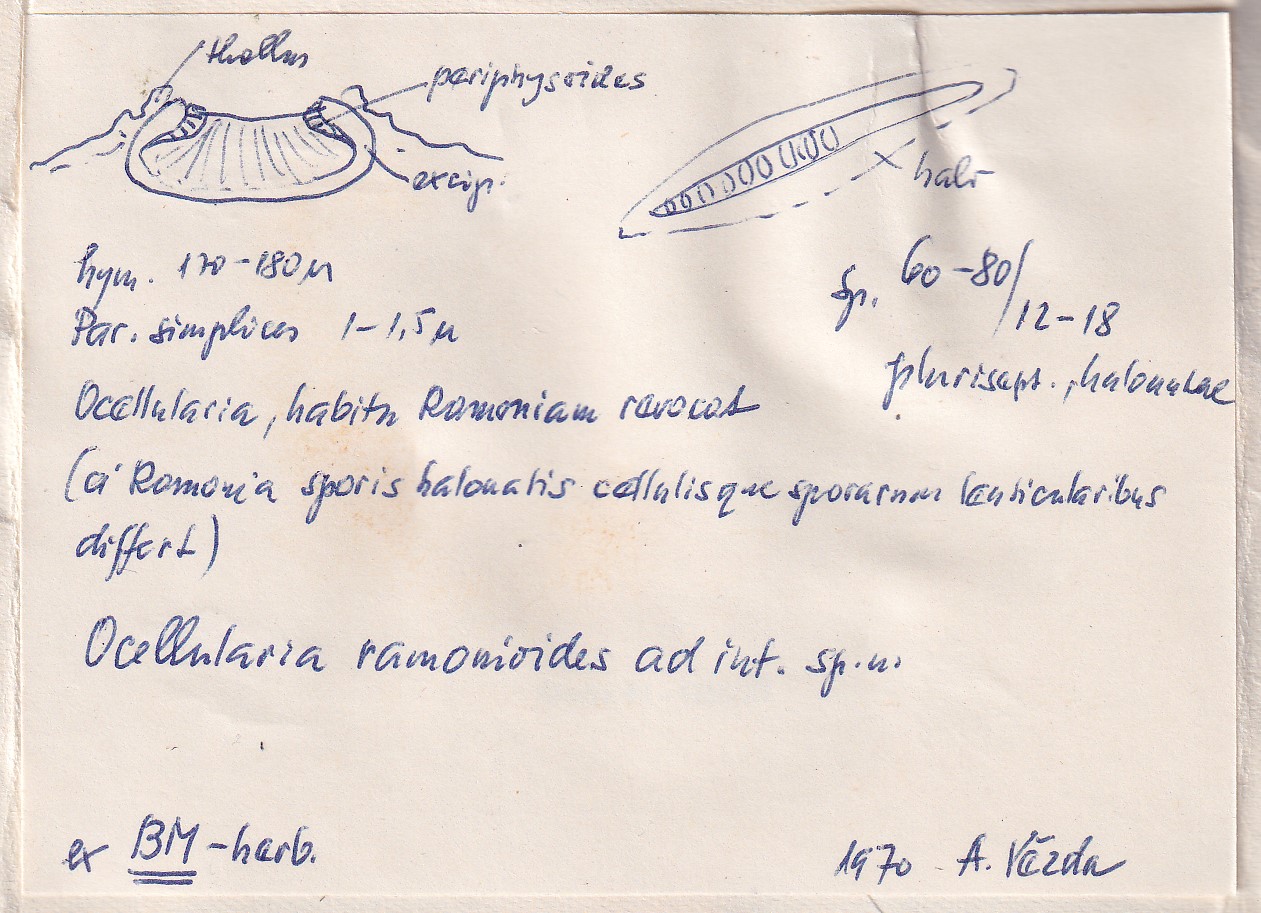 thallus
periphysoides
excip.
halo
hym. 170-180µ
Par. simplices 1-1,5µ
sp. 60-80/12-18
plurisept., halonatae
Ocellularia, habitu Ramoniam revocat
(a Ramonia sporis halonatis cellulisque sporarum lenticularibus
differt)
Ocellularia ramonioides ad int. sp.n.
ex BM-herb.
1970 A. Vězda